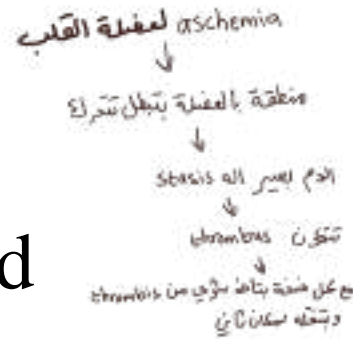 aschemia لعضلة القلب
منطقة بالعضلة بتبطل تتحرك
الدم بصير اله stasis
تتكون thrombus
مع كل ضخة بتاخذ شوي من thrombis
وبتنقله لمكان ثاني
d